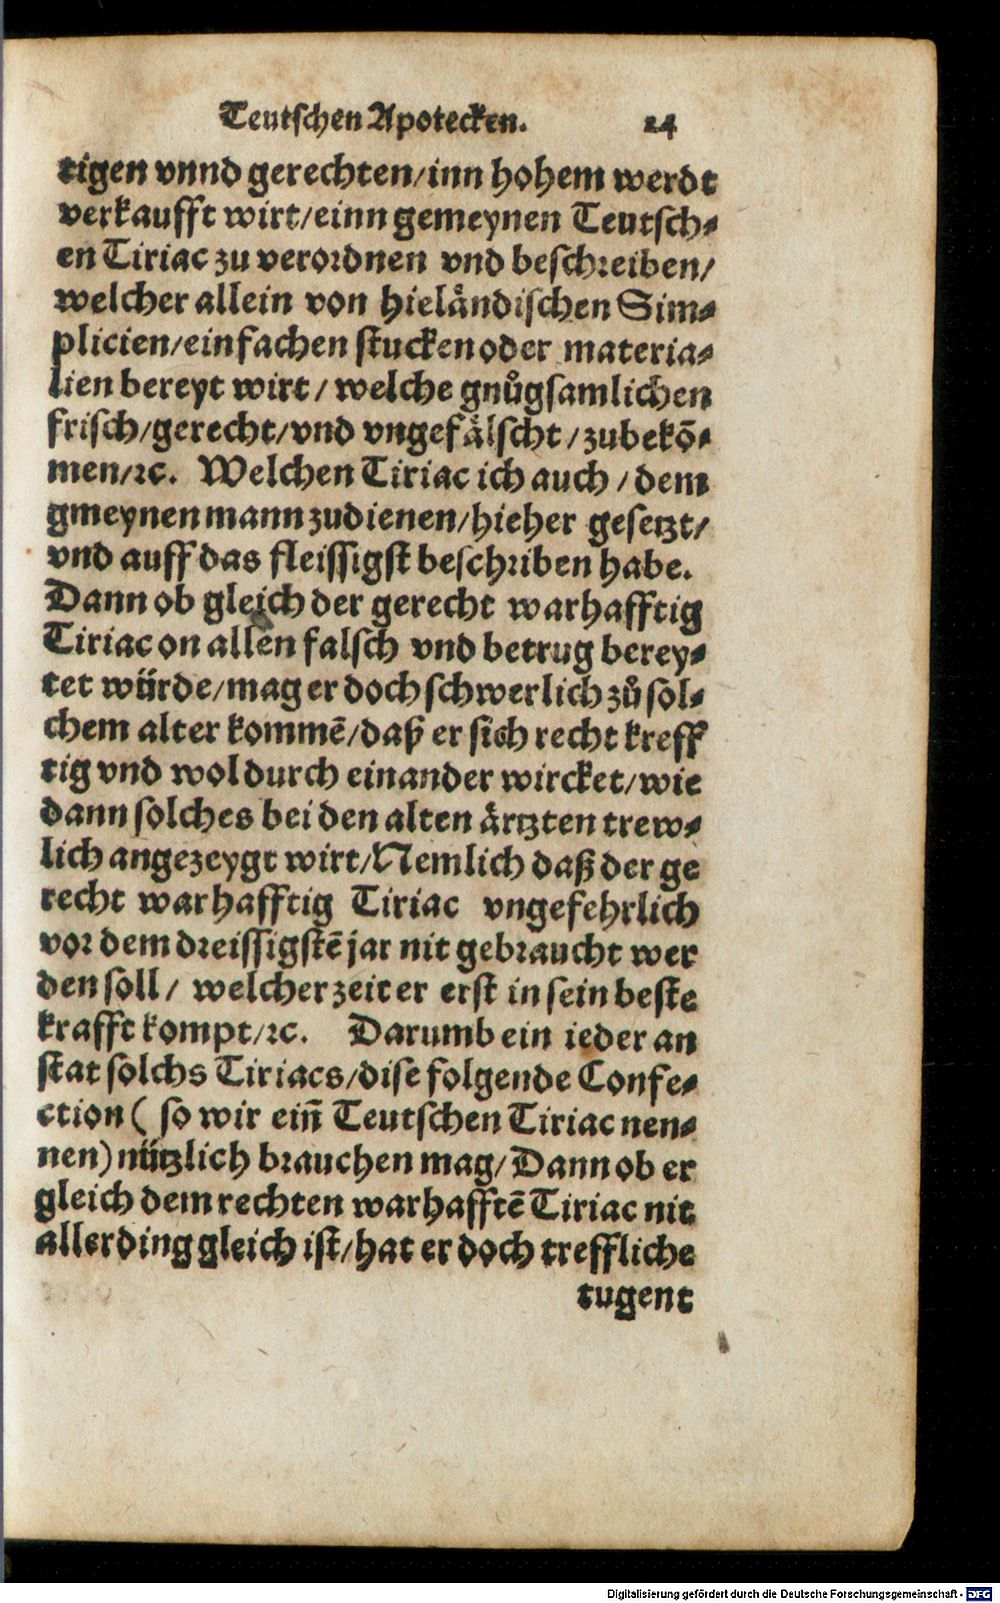 Teutschen Apotecken. 24
tigen vnnd gerechten/inn hohem werdt
verkaufft wirt/einn gemeynen Teutsch⸗
en Tiriac zu verordnen vnd beschreiben/
welcher allein von hieländischen Sim⸗
plicien/einfachen stucken oder materia⸗
lien bereyt wirt/ welche gnůgsamlichen
frisch/gerecht/vnd vngefälscht/zubekō⸗
men/ꝛc. Welchen Tiriac ich auch/dem
gmeynen mann zudienen/hieher gesetzt/
vnd auff das fleissigst beschriben habe.
Dann ob gleich der gerecht warhafftig
Tiriac on allen falsch vnd betrug berey⸗
tet würde/mag er doch schwerlich zů sol⸗
chem alter kommē/daß er sich recht kreff
tig vnd wol durch einander wircket/wie
dann solches bei den alten ärtzten trew⸗
lich angezeygt wirt/Nemlich daß der ge
recht warhafftig Tiriac vngefehrlich
vor dem dreissigstē jar nit gebraucht wer
den soll/ welcher zeit er erst in sein beste
krafft kompt/ꝛc. Darumb ein ieder an
stat solchs Tiriacs/dise folgende Confe⸗
ction ( so wir eiñ Teutschen Tiriac nen⸗
nen) nützlich brauchen mag/Dann ob er
gleich dem rechten warhafftē Tiriac nit
allerding gleich ist/hat er doch treffliche
tugent
Digitalisierung gefördert durch die Deutsche Forschungsgemeinschaft - DFG